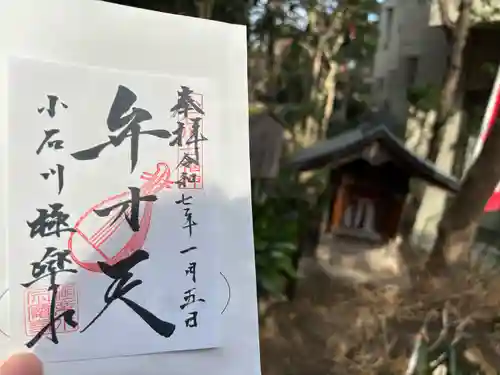 奉拝 令和七年一月五日
弁才天
小石川 極楽水